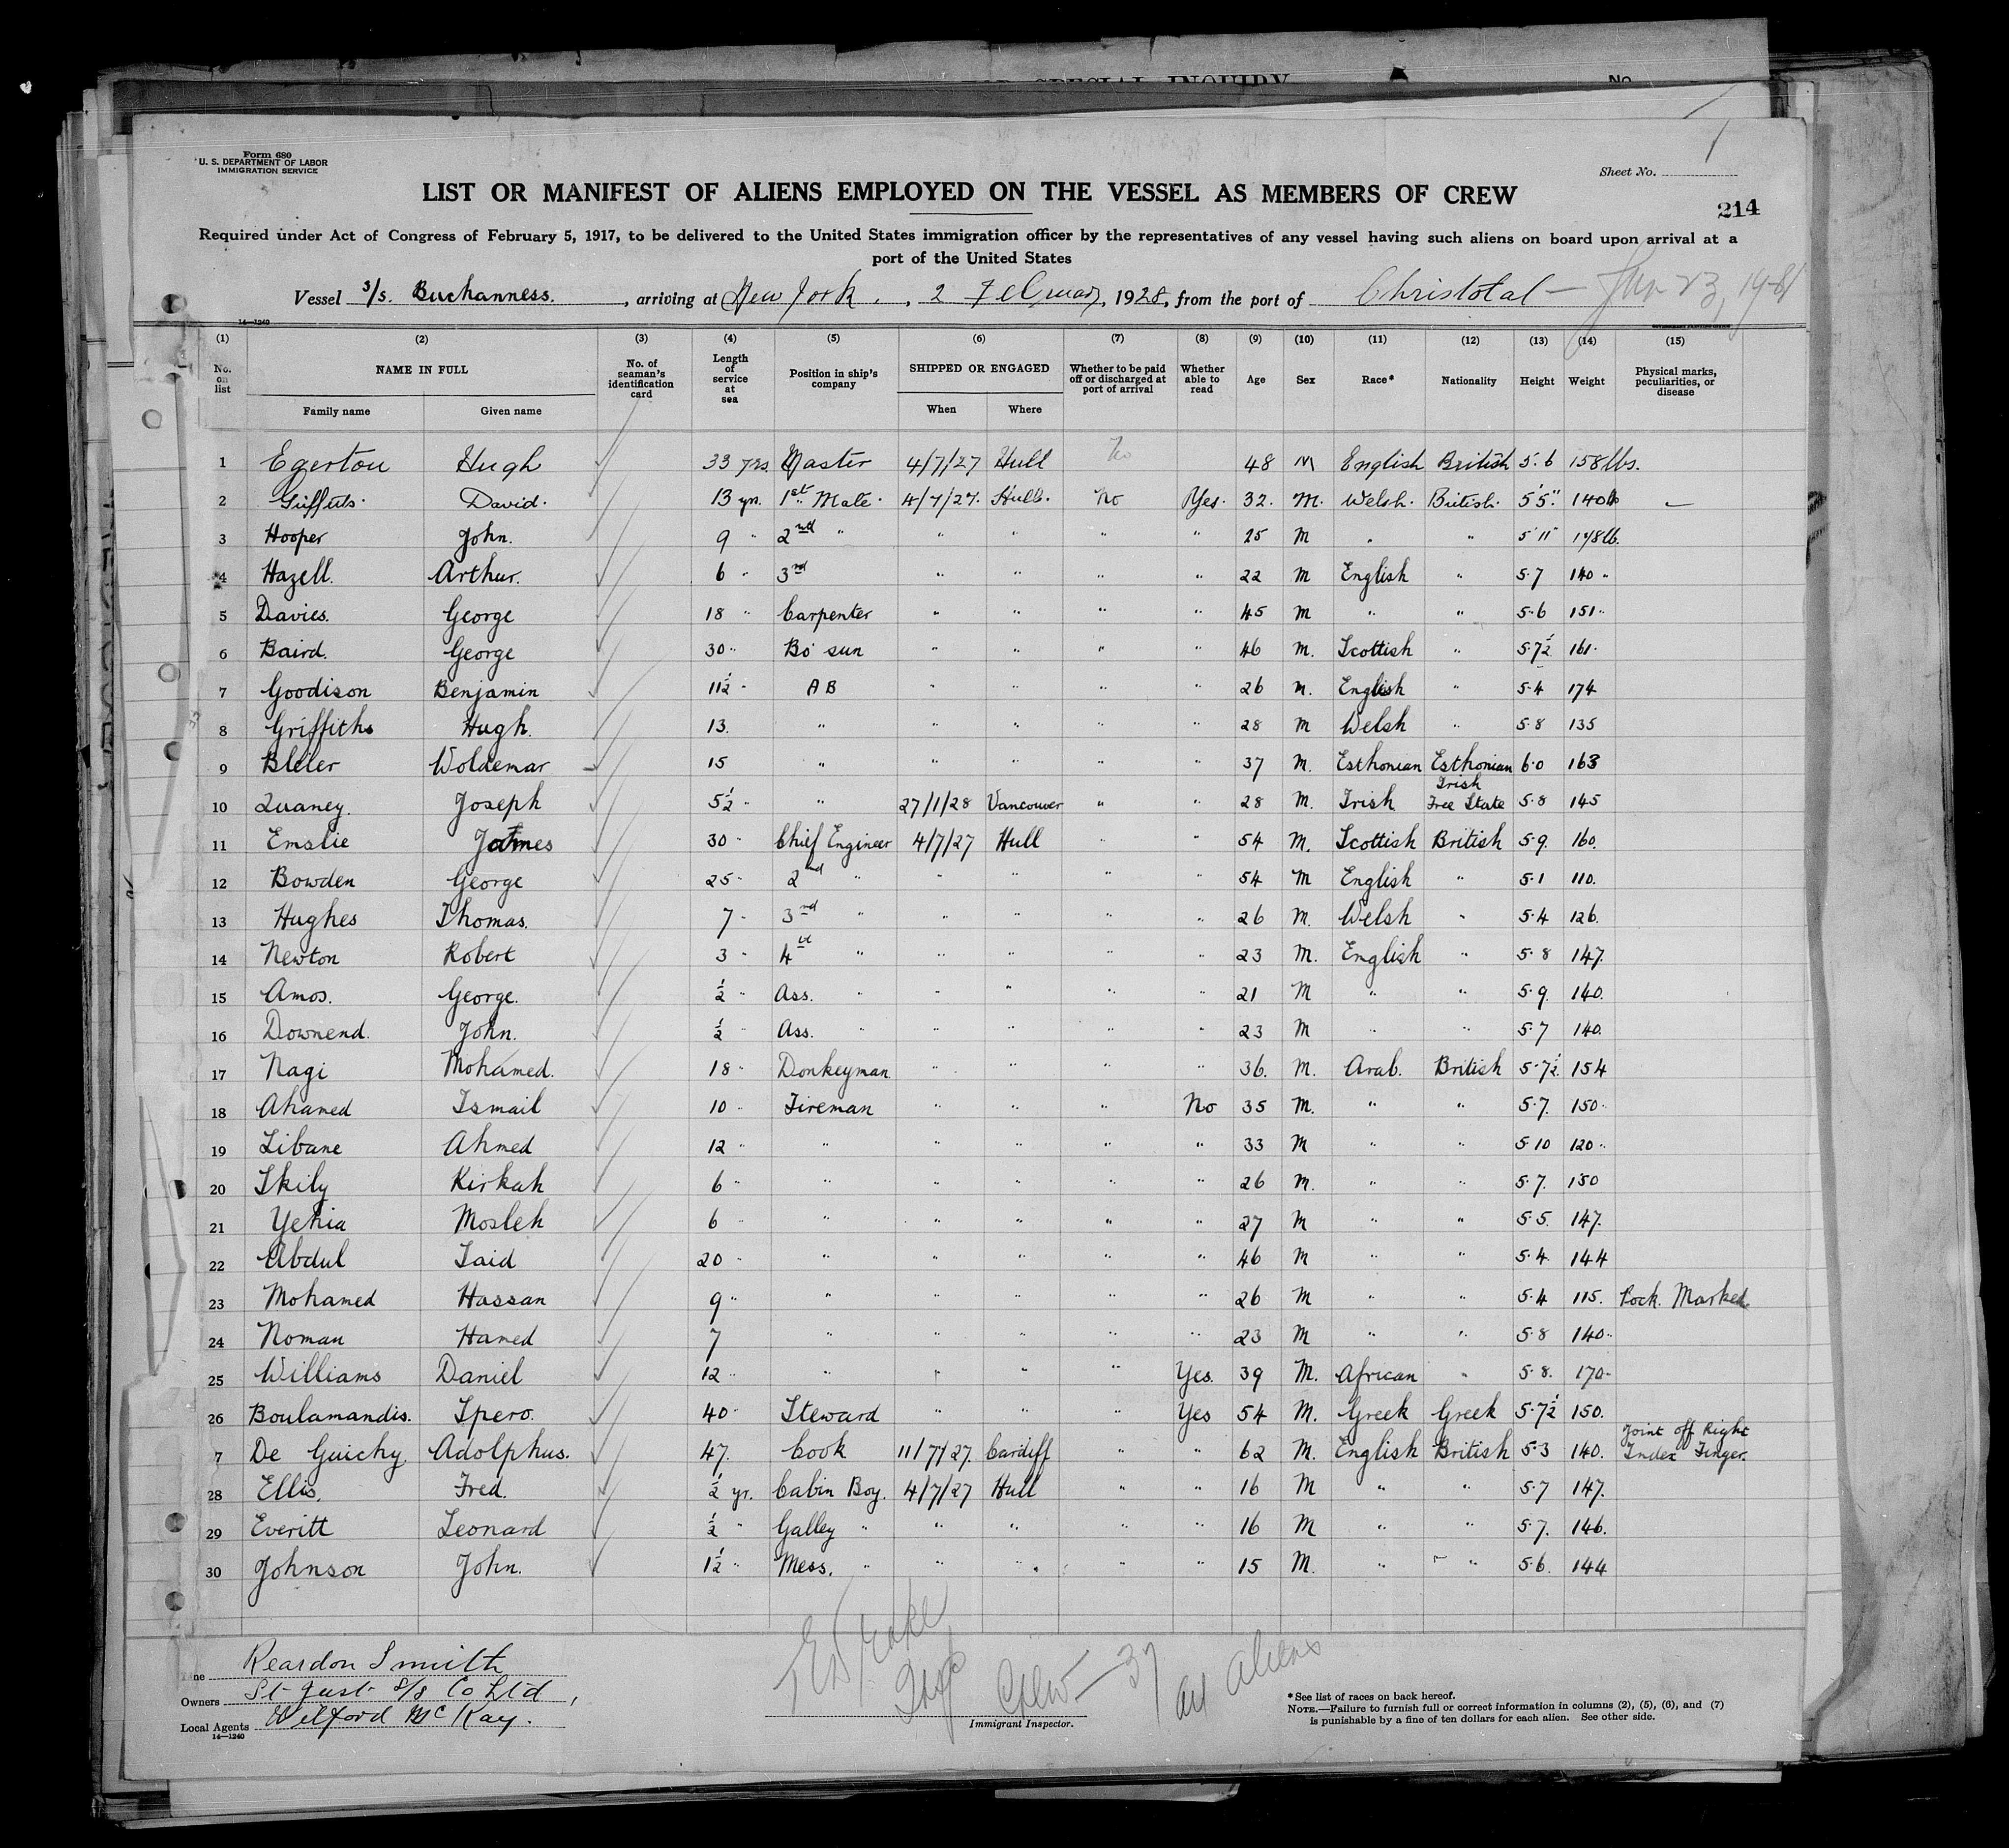 FOR SPECIAL INQUIRY No.
Form 680
U. S. DEPARTMENT OF LABOR
IMMIGRATION SERVICE
Sheet No. 1
LIST OR MANIFEST OF ALIENS EMPLOYED ON THE VESSEL AS MEMBERS OF CREW
214
Required under Act of Congress of February 5, 1917, to be delivered to the United States immigration officer by the representatives of any vessel having such aliens on board upon arrival at a
port of the United States
Vessel S/S. Buchanness. , arriving at New York. , 2 February, 1928, from the port of Christobal —
14—1240
(1) (2) (3) (4) (5) (6) (7) (8) (9) (10) (11) (12) (13) (14) (15)
No. on list NAME IN FULL No. of seaman's identification card Length of service at sea Position in ship's company SHIPPED OR ENGAGED Whether to be paid off or discharged at port of arrival Whether able to read Age Sex Race* Nationality Height Weight Physical marks, peculiarities, or disease
Family name Given name When Where
1 Egerton Hugh 33 yrs. Master 4/7/27 Hull No 48 M English British 5.6 158 lbs.
2 David. 13 yrs. 1st Mate. 4/7/27. Hull. No Yes. 32. M. Welsh. British. 5'5" 140 lb —
3 Hooper John. 9 " 2nd " " " " " 25 M " " 5'11" 148 lb.
4 Hazell. Arthur. 6 " 3rd " " " " 22 M English " 5.7 140 "
5 Davies. George 18 " Carpenter " " " " 45 M " " 5.6 151 "
6 Baird. George 30 " Bo'sun " " " " 46 M. Scottish " 5.7½ 161
7 Goodison Benjamin 11½ " A B " " " " 26 M. English " 5.4 174
8 Griffiths Hugh. 13. " " " " " 28 M Welsh " 5.8 135
9 Woldemar 15 " " " " " 37 M. Esthonian Esthonian 6.0 163
10 Quaney. Joseph 5½ " " 27/1/28 Vancouver " " 28 M. Irish Irish Free State 5.8 145
11 Emslie James 30 " Chief Engineer 4/7/27 Hull " " 54 M. Scottish British 5.9. 160.
12 Bowden George 25 " 2nd " " " " " 54 M English " 5.1 110.
13 Hughes Thomas. 7 " 3rd " " " " " 26 M. Welsh " 5.4 126.
14 Newton Robert 3 " 4th " " " " " 23 M. English " 5.8 147.
15 Amos. George. ½ " Ass. " " " " " 21 M " " 5.9. 140.
16 Downend. John. ½ " Ass. " " " " " 23 M " " 5.7 140.
17 Nagi Mohamed. 18 " Donkeyman " " " " 36. M. Arab. British 5.7½ 154
18 Ahamed Ismail 10 " Fireman " " " No 35 M. " " 5.7. 150
19 Libane Ahmed 12 " " " " " " 33 M " " 5.10 120 "
20 Skily Kirkah 6 " " " " " " 26 M. " " 5.7. 150
21 Yehia Mosleh 6 " " " " " " 27 M " " 5.5. 147.
22 Abdul Said 20 " " " " " " 46 M " " 5.4. 144
23 Mohamed Hassan 9 " " " " " " 26 M " " 5.4 115. Pock. Marked.
24 Noman Hamed 7 " " " " " 23 M " " 5.8 140 "
25 Williams Daniel 12 " " " " " Yes. 39 M. African " 5.8. 170
26 Boulamandis. Spero. 40 " Steward " " " Yes 54 M. Greek Greek 5.7½ 150.
7 De Guichy. Adolphus. 47. Cook 11/7/27. Cardiff " " 62 M. English British 5.3 140. Joint off Right Index Finger.
28 Ellis. Fred. ½ yr. Cabin Boy. 4/7/27 Hull " " 16 M " " 5.7 147.
29 Everitt Leonard ½ " Galley " " " " " 16 M " " 5.7. 146.
30 Johnson John. 1½ " Mess. " " " " " 15 M. " " 5.6. 144
Reardon Smith
Owners St Just S/S Co Ltd,
Local Agents Wilford McKay.
14—1240
Crew — 37 all aliens
Immigrant Inspector.
*See list of races on back hereof.
NOTE.—Failure to furnish full or correct information in columns (2), (5), (6), and (7)
is punishable by a fine of ten dollars for each alien. See other side.